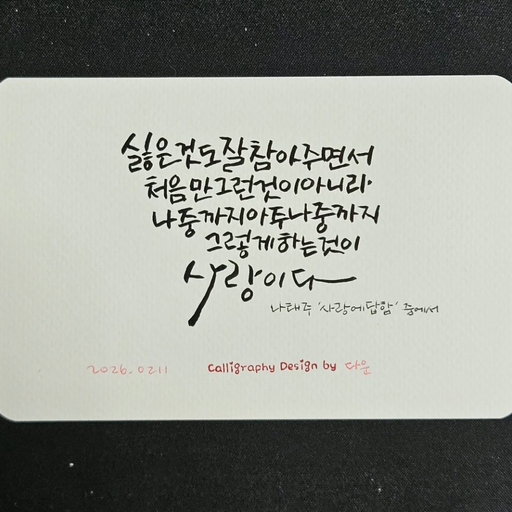 싫은것도잘참아주면서
처음만그런것이아니라
나중까지아주나중까지
그렇게하는것이
사랑이다
나태주 '사랑에답함' 중에서
2026.0211 Calligraphy Design by 다운